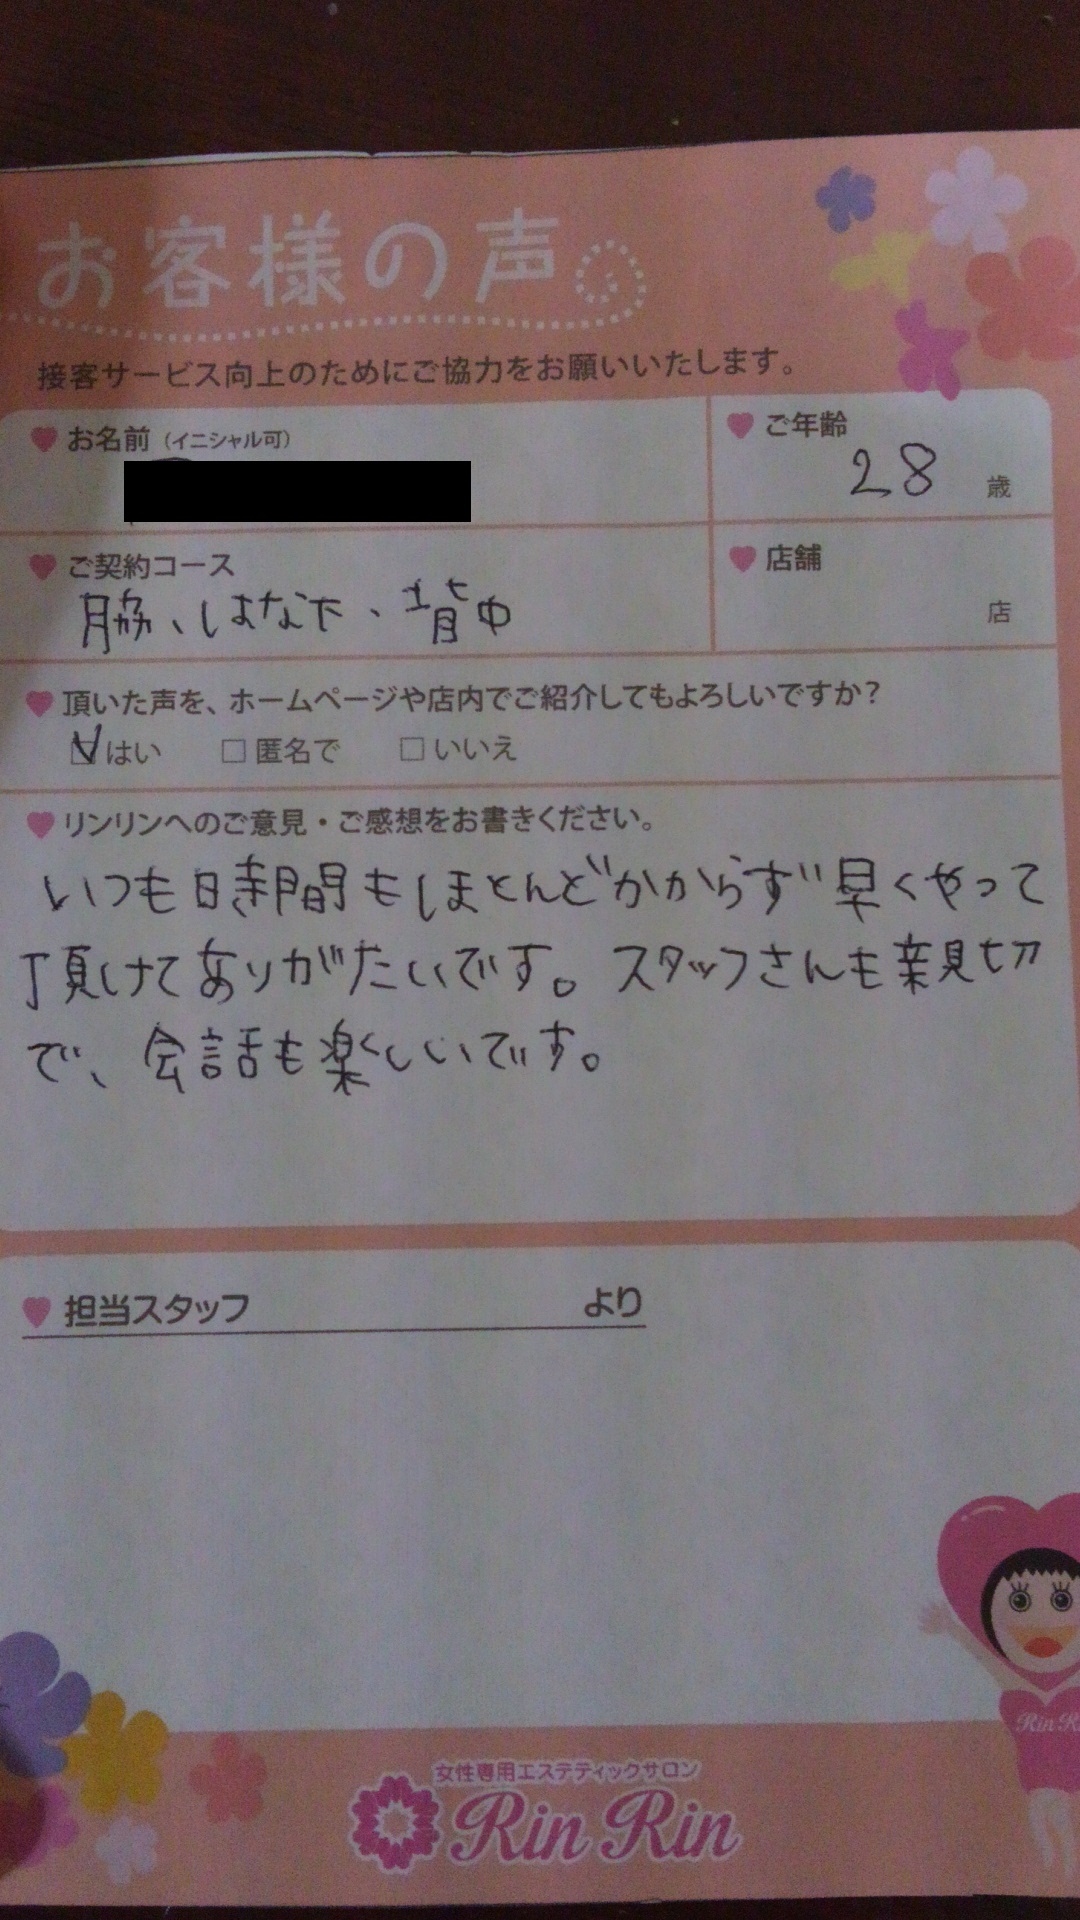 お客様の声
接客サービス向上のためにご協力をお願いいたします。
お名前（イニシャル可）
ご年齢
28 歳
ご契約コース
脇、はな下、背中
店舗
店
頂いた声を、ホームページや店内でご紹介してもよろしいですか？
はい □匿名で □いいえ
リンリンへのご意見・ご感想をお書きください。
いつも時間もほとんどかからず早くやって
頂けてありがたいです。スタッフさんも親切
で、会話も楽しいです。
担当スタッフ より
Rin R
女性専用エステティックサロン
Rin Rin